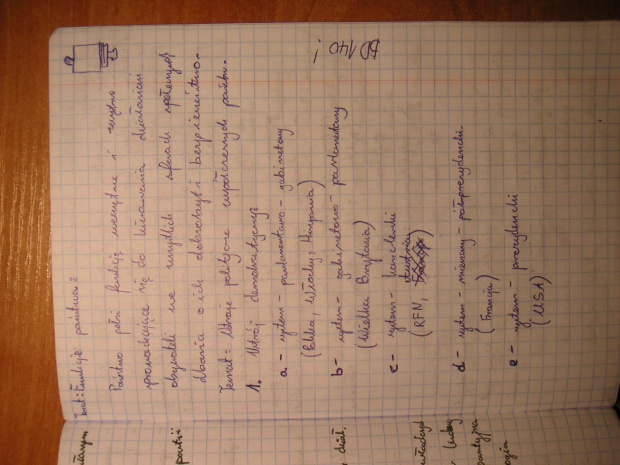 Temat: Funkcje państwa:
Państwo pełni funkcję wewnętrzne i zewnętrzne
sprowadzające się do kierowania działaniami
obywateli we wszystkich sferach społecznych
dbania o ich dobrobyt i bezpieczeństwo.
Temat: Ustroje polityczne współczesnych państw.
1. Ustrój demokratyczny:
a - system - parlamentarno - gabinetowy
(Polska, Włochy, Hiszpania)
b - system - gabinetowo - parlamentarny
(Wielka Brytania)
c - system - kanclerski
(RFN, Austria)
d - system - mieszany - półprezydencki.
(Francja)
e - system - prezydencki
(USA)
140!
partii